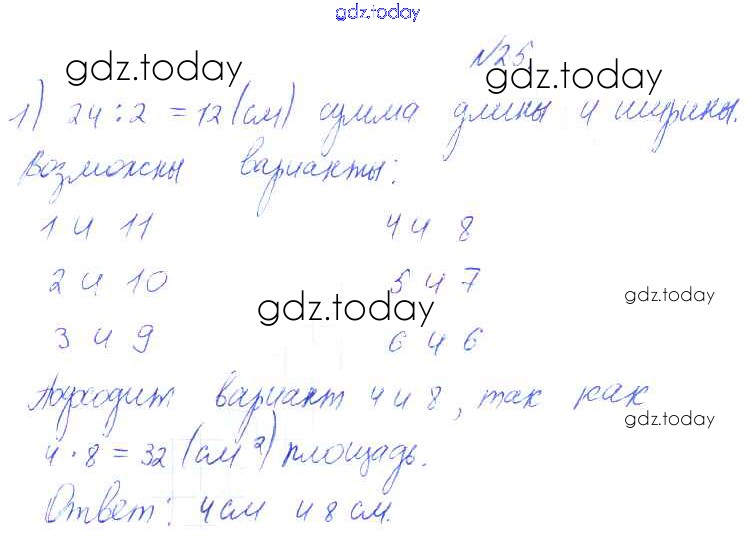 gdz.today
№25
gdz.today gdz.today
1) 24 : 2 = 12 (см) сумма длины и ширины.
Возможны варианты:
1 и 11 4 и 8
2 и 10 5 и 7
gdz.today
gdz.today
3 и 9 6 и 6
Подходит вариант 4 и 8, так как
gdz.today
4 · 8 = 32 (см²) площадь.
Ответ: 4 см и 8 см.